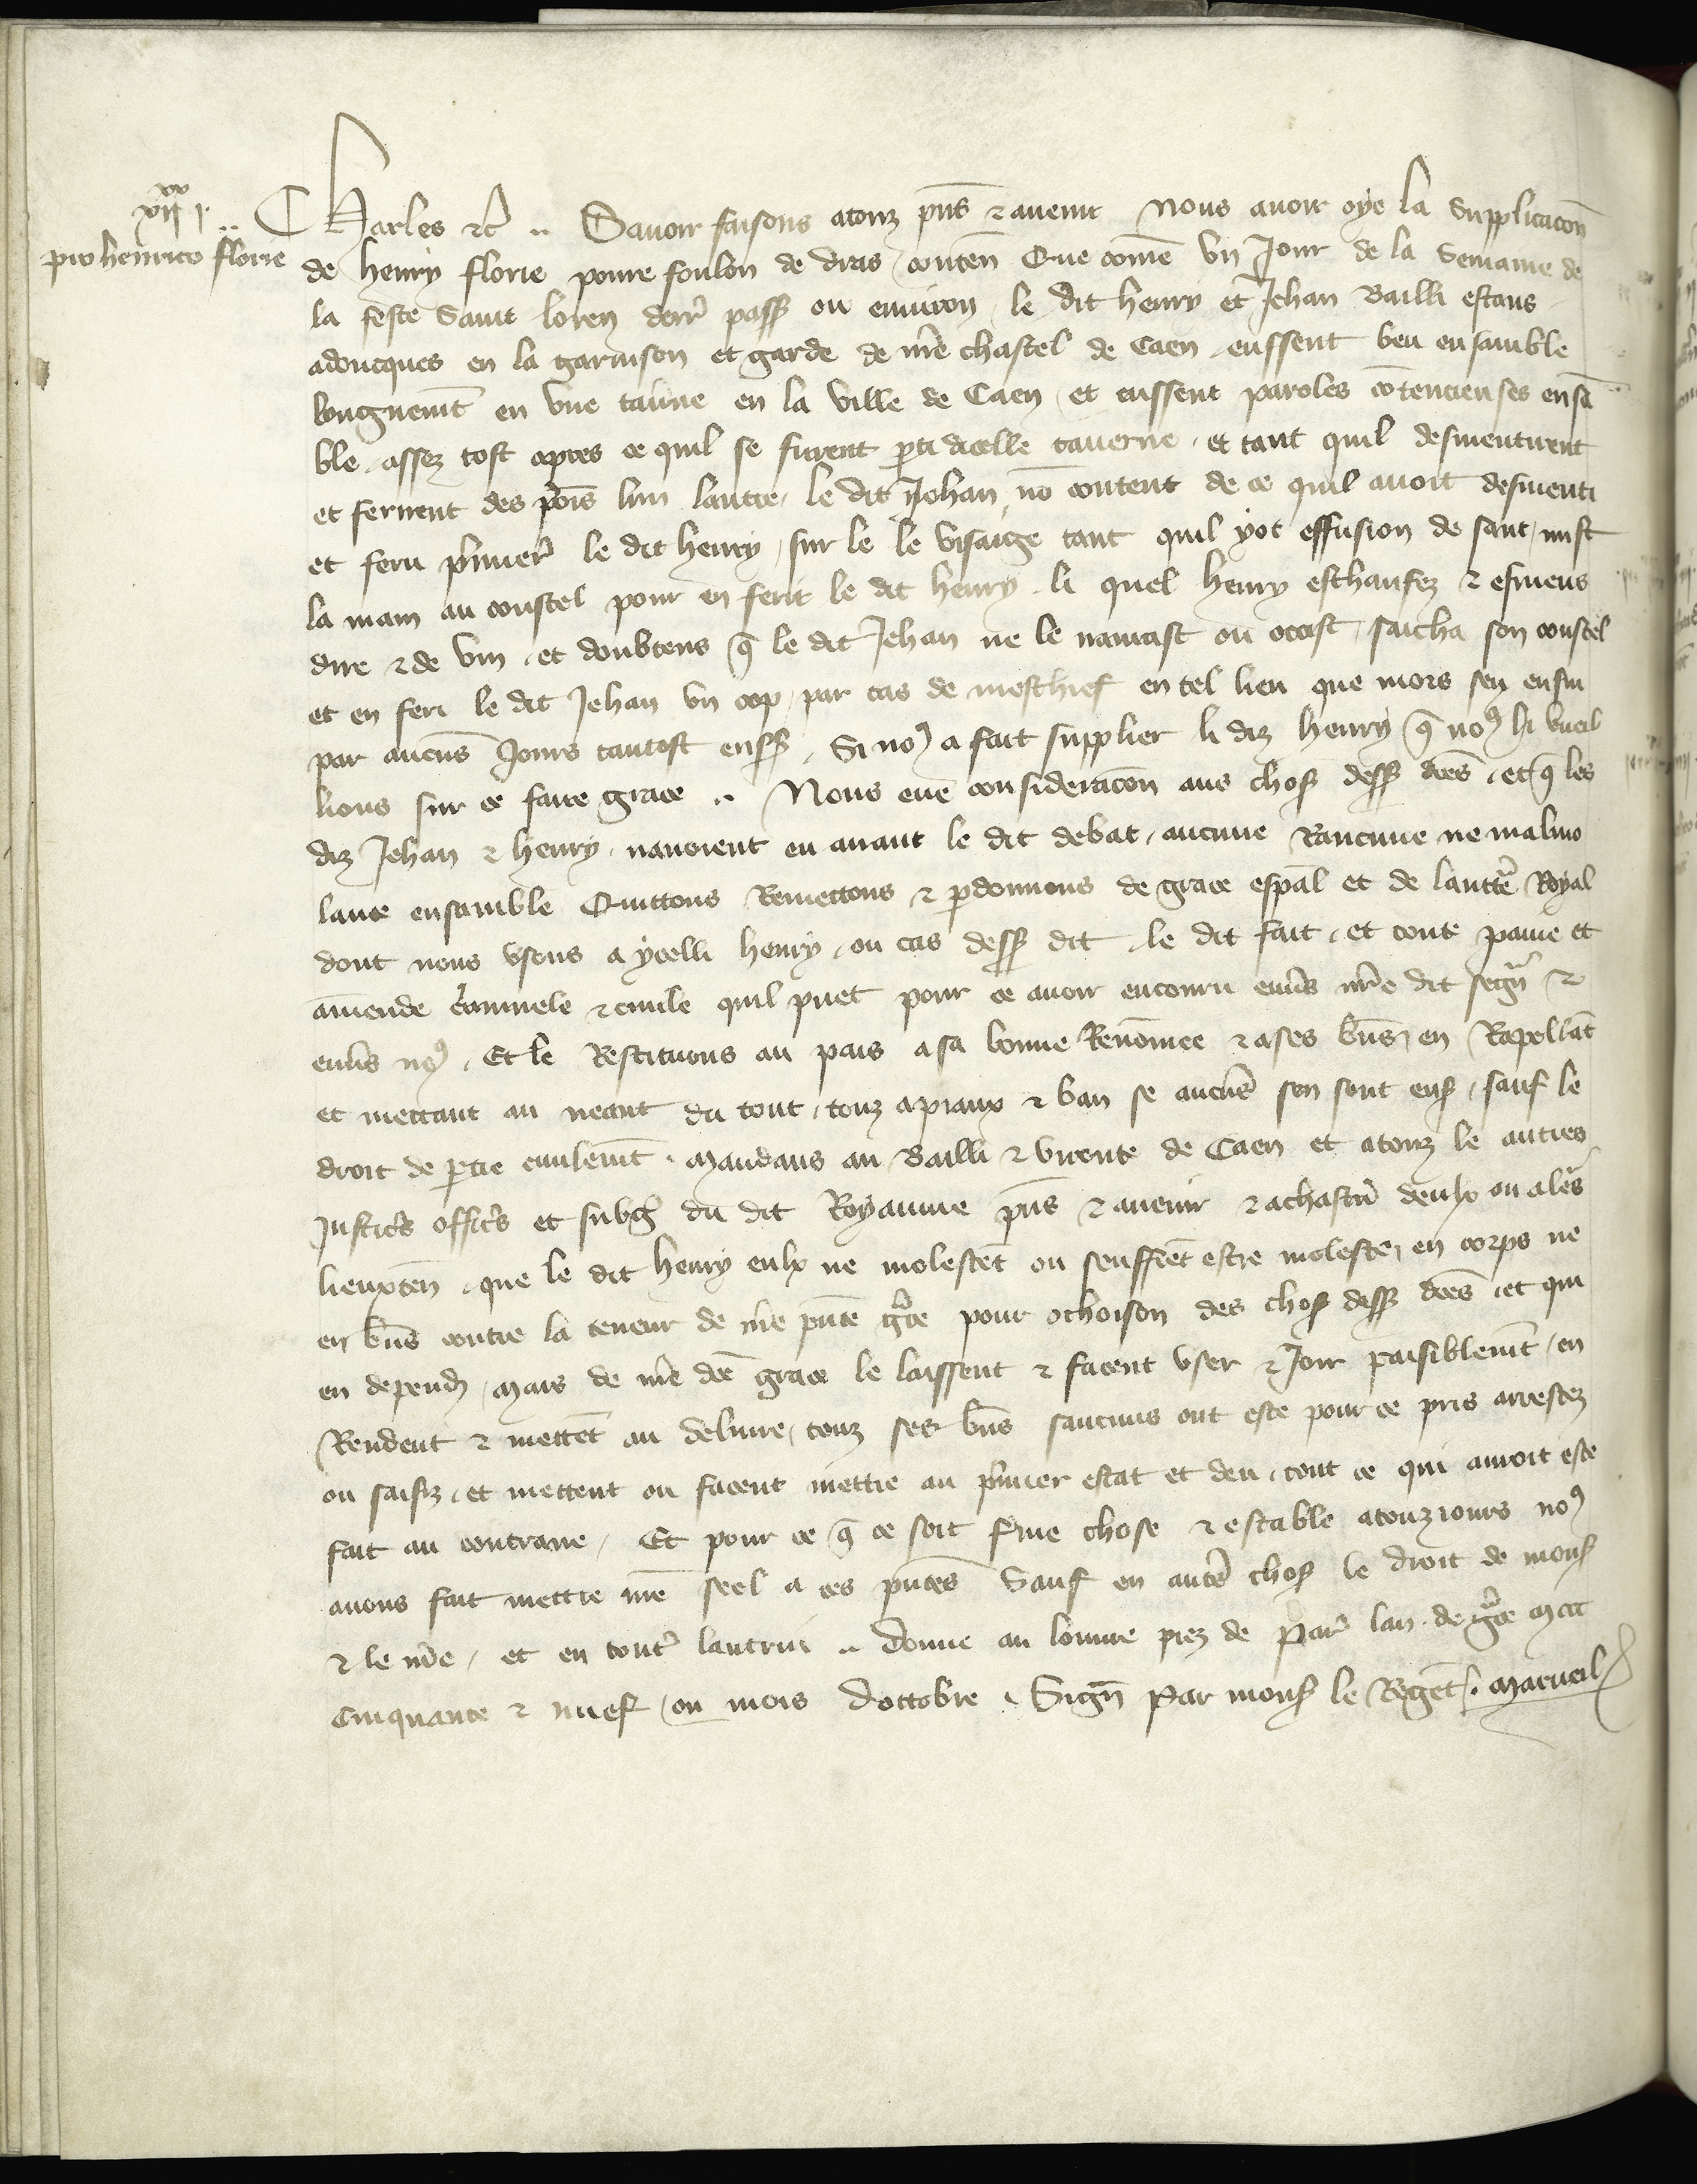 xiiijxx j.
pro henrico florie
Charles etc̃ .. Sauoir faisons atouz pn̄s ⁊ auenir Nous auoir oye la Supplicacōn
de henry florie poure foulon de dras / contēn Que com̄e vn Jour de la Semaine de
la feste Saint loreng derr̄ pass̄ ou enuiron / le dit henry et Jehan Bailli estans
adoncques en la garnison et garde de nr̄e chastel de Caen / eussent beu ensamble
longuemt̄ en vne tau̾ne en la ville de Caen / et eussent paroles cōtencieuses ensā
ble / assez tost apres ce quil se furent ꝑti dicelle tauerne / et tant quil desmentirent
et ferirent des poīs lun lautre / le dit Jehan nō content de ce quil auoit desmenti
et feru p̄mier̄ le dit henry / sur le le visaige tant quil yot effusion de sanc / mist
la main au coustel pour en ferir le dit henry . li quel henry eschaufez ⁊ esmeus
dire ⁊ de vin / et doubtens q̄ le dit Jehan ne le naurast ou occist / saicha son coustel
et en feri le dit Jehan vn cop / par cas de meschief en tel lieu que mors sen ensui
par aucūs Jours tantost enss̄ . Si noꝰ a fait supplier li diz henry q̄ noꝰ li vueil
lions sur ce faire grace .. Nous eue consideracōn aus chos̄ dess̄ dc̄es / et q̄ les
diz Jehan ⁊ henry / nauoient eu auant le dit debat / aucune Rancune ne maliuo
lance ensamble Quittons Remettons ⁊ ꝑdonnons de grace espāl et de lauctr̄e Royal
dont nous vsons a ycelli henry / ou cas dess̄ dit / le dit fait / et toute paine et
amende c̾iminele ⁊ ciuile quil puet pour ce auoir encouru enu̾s nr̄e dit segn̄r ⁊
enu̾s noꝰ . Et le Restituons au pais a sa bonne Renōmee ⁊ a ses bn̄s / en Rapellāt
et mettant au neant du tout / touz apiaux ⁊ ban se aucūs sen sont ens̄ / sauf le
droit de ꝑtie ciuilemt̄ . Mandans au Bailli ⁊ viconte de Caen et atouz le autres
Justic̾s offic̾s et subg̾ du dit Royaume pn̄s ⁊ auenir ⁊ achascū deulx ou a le̾s
lieuxtēn / que le dit henry eulx ne molestēt ou seuffrēt estre moleste / en corps ne
en bn̄s contre la teneur de nr̄e pn̄te gr̄ce pour ochoison des chos̄ dess̄ dc̄es / et qui
en depend̄ / Mais de nr̄e dc̄e grace le laissent ⁊ facent vser ⁊ Joir paisiblemt̄ / en
Rendent ⁊ mettēt au deliure / touz ses bn̄s saucuns ont este pour ce pris arrestez
ou saisiz / et mettent ou facent mettre au p̄mier estat et deu / tout ce qui auroit este
fait au contraire / Et pour ce q̄ ce soit f̾me chose ⁊ estable atouziours noꝰ
auons fait mettre nr̄e seel a ces pn̄tes Sauf en autr̄ chos̄ le droit de mons̄
⁊ le nr̄e / et en tout̾ lautrui .. donne au louure prez de Par̄ lan de gr̄ce Mil ccc
cinquante ⁊ nuef / ou mois doctobre . Sign̄ Par mons̄ le Regēt . Marueil